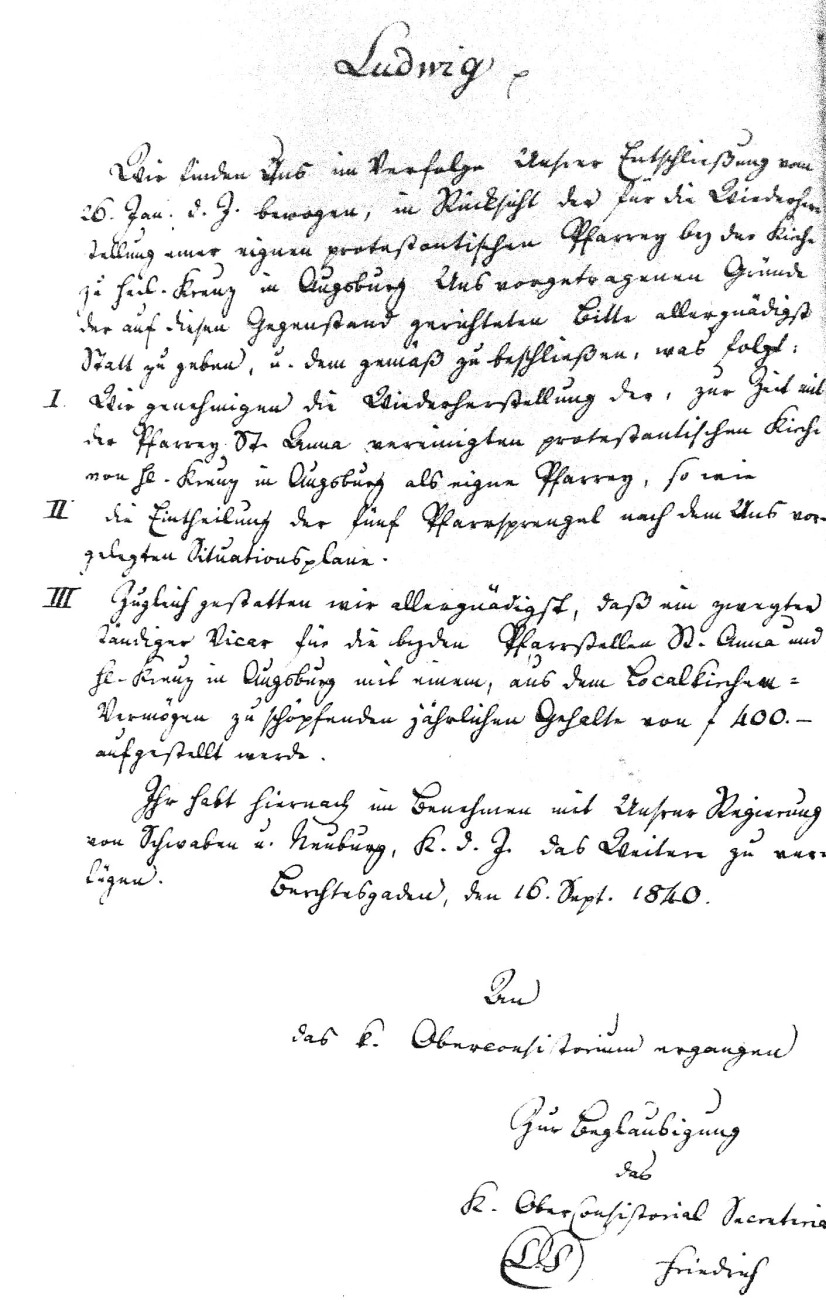 Ludwig
Wir finden Uns im Verfolge Unsrer Entschließung vom
26. Jan. d. J. bewogen, in Rücksicht der für die Wiederher-
stellung einer eignen protestantischen Pfarrey bey der Kirche
zu heil. Kreuz in Augsburg Uns vorgetragenen Gründe
der auf diesen Gegenstand gerichteten Bitte allergnädigst
Statt zu geben, u. dem gemäß zu beschließen, was folgt:
I. Wir genehmigen die Wiederherstellung der, zur Zeit mit
der Pfarrey St. Anna vereinigten protestantischen Kirche
von hl. Kreuz in Augsburg als eigne Pfarrey, so wie
II die Eintheilung der fünf Pfarrsprengel nach dem Uns vor-
gelegten Situationsplane.
III Zugleich gestatten wir allergnädigst, daß ein zweyter
ständiger Vicar für die beyden Pfarrstellen St. Anna und
hl. Kreuz in Augsburg mit einem, aus dem Localkirchen=
Vermögen zu schöpfenden jährlichen Gehalte von f 400.–
aufgestellt werde.
Ihr habt hiernach im Benehmen mit Unsrer Regierung
von Schwaben u. Neuburg, K. d. J. das Weitere zu ver-
fügen. Berchtesgaden, den 16. Sept. 1840.
An
das k. Oberconsistorium ergangen
Zur Beglaubigung
das
K. Oberconsistorial Secretaria
(L.S) Friedrich